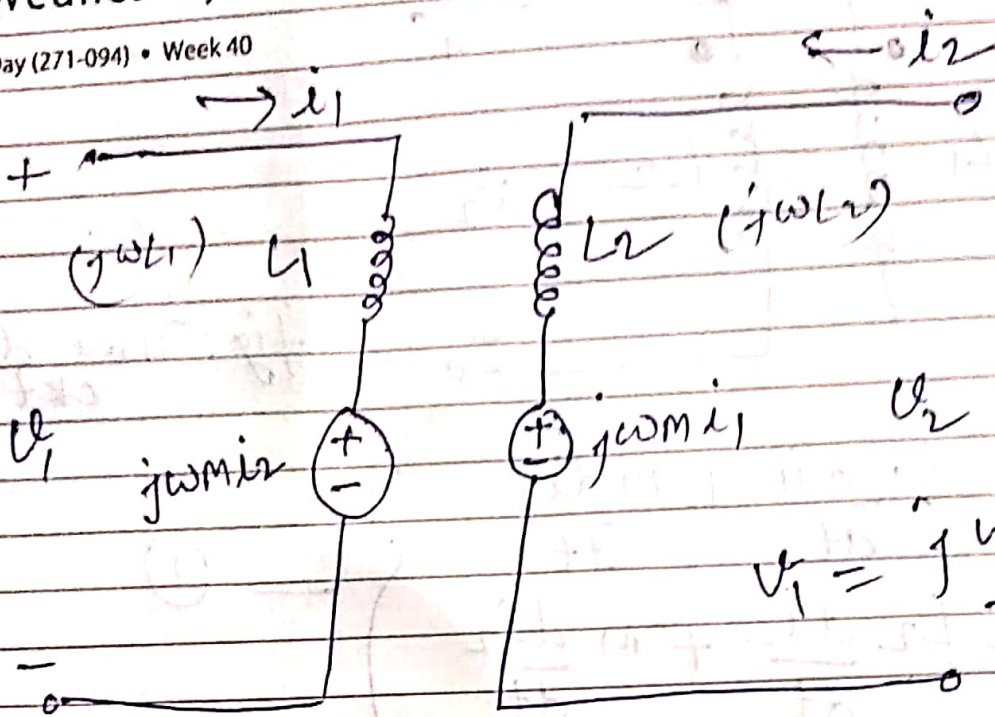 ay (271-094) • Week 40
← i2
→ i1
+
(jωL1) L1
L2 (jωL2)
+
+
v1
jωMi2
jωMi1
v2
−
−
v1 = j
−